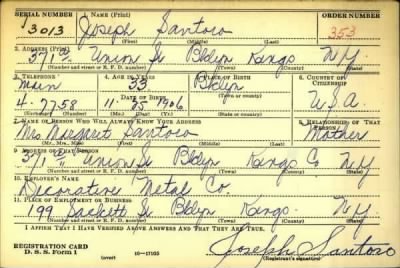 SERIAL NUMBER 1. NAME (Print) ORDER NUMBER
13013 Joseph Santoro 353
(First) (Middle) (Last)
2. ADDRESS (Print)
371 Union St Bklyn Kings N Y
(Number and street or R. F. D. number) (Town) (County) (State)
3. TELEPHONE 4. AGE IN YEARS 5. PLACE OF BIRTH 6. COUNTRY OF CITIZENSHIP
Main 33 Bklyn
DATE OF BIRTH (Town or county)
4-7758 11 1906 U.S.A
(Exchange) (Number) (Mo.) (Day) (Yr.) (State or country)
7. NAME OF PERSON WHO WILL ALWAYS KNOW YOUR ADDRESS 8. RELATIONSHIP OF THAT PERSON
Mrs Margaret Santoro Mother
(Mr., Mrs., Miss) (First) (Middle) (Last)
9. ADDRESS OF THAT PERSON
371 Union St Bklyn Kings Co N Y
(Number and street or R. F. D. number) (Town) (County) (State)
10. EMPLOYER'S NAME
Decorative Metal Co.
11. PLACE OF EMPLOYMENT OR BUSINESS
199 Sackett St Bklyn Kings N Y
(Number and street or R. F. D. number) (Town) (County) (State)
I AFFIRM THAT I HAVE VERIFIED ABOVE ANSWERS AND THAT THEY ARE TRUE.
REGISTRATION CARD Joseph Santoro
D. S. S. Form 1 (over) 16—17105 (Registrant's signature)